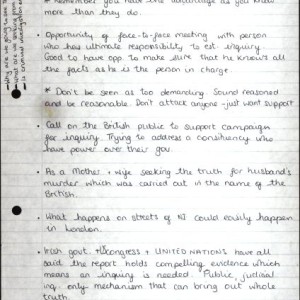 * Remember you have the advantage as you know
more than they do.
• Opportunity of face-to-face meeting with person
who has ultimate responsibility to est. inquiry.
Good to have opp. to make sure that he knows all
the facts as he is the person in charge.
* Don't be seen as too demanding. Sound reasoned
and be reasonable. Don't attack anyone - just want support
• Call on the British public to support campaign
for inquiry. Trying to address a constituency who
have power over their gov.
• As a Mother + wife seeking the truth for husband's
murder which was carried out in the name of the
British.
• What happens on streets of NI could easily happen
in London.
• Irish govt. + US Congress + UNITED NATIONS have all
said the report holds compelling evidence which
means an inquiry is needed. Public, judicial
inq. only mechanism that can bring out whole
truth.